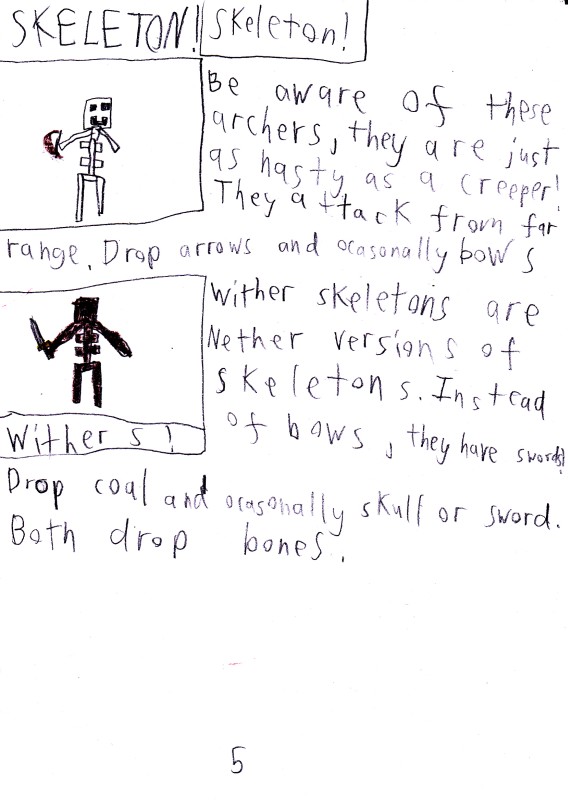 SKELETON! Skeleton!
Be aware of these
archers, they are just
as nasty as a creeper!
They attack from far
range. Drop arrows and ocasonally bows
Wither skeletons are
Nether versions of
skeletons. Instead
of bows, they have swords!
Wither s!
Drop coal and ocasonally skull or sword.
Both drop bones.
5